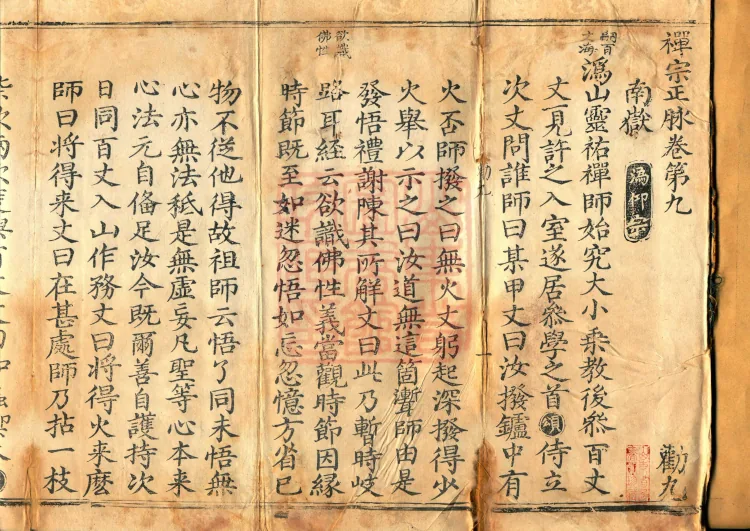 禪宗正脉卷第九
南嶽 潙仰宗
潙山靈祐禪師始究大小乘教後叅百丈
丈一見許之入室遂居叅學之首頌侍立
次丈問誰師曰某甲丈曰汝撥鑪中有
火否師撥之曰無火丈躬起深撥得少
火舉以示之曰汝道無這箇聻師由是
發悟禮謝陳其所解丈曰此乃暫時岐
路耳經云欲識佛性義當觀時節因緣
時節既至如迷忽悟如忘忽憶方省已
物不從他得故祖師云悟了同未悟無
心亦無法秪是無虛妄凡聖等心本來
心法元自俻足汝今既爾善自護持次
日同百丈入山作務丈曰將得火来麽
師曰将得来丈曰在甚處師乃拈一枝
欲識
佛性
勸九